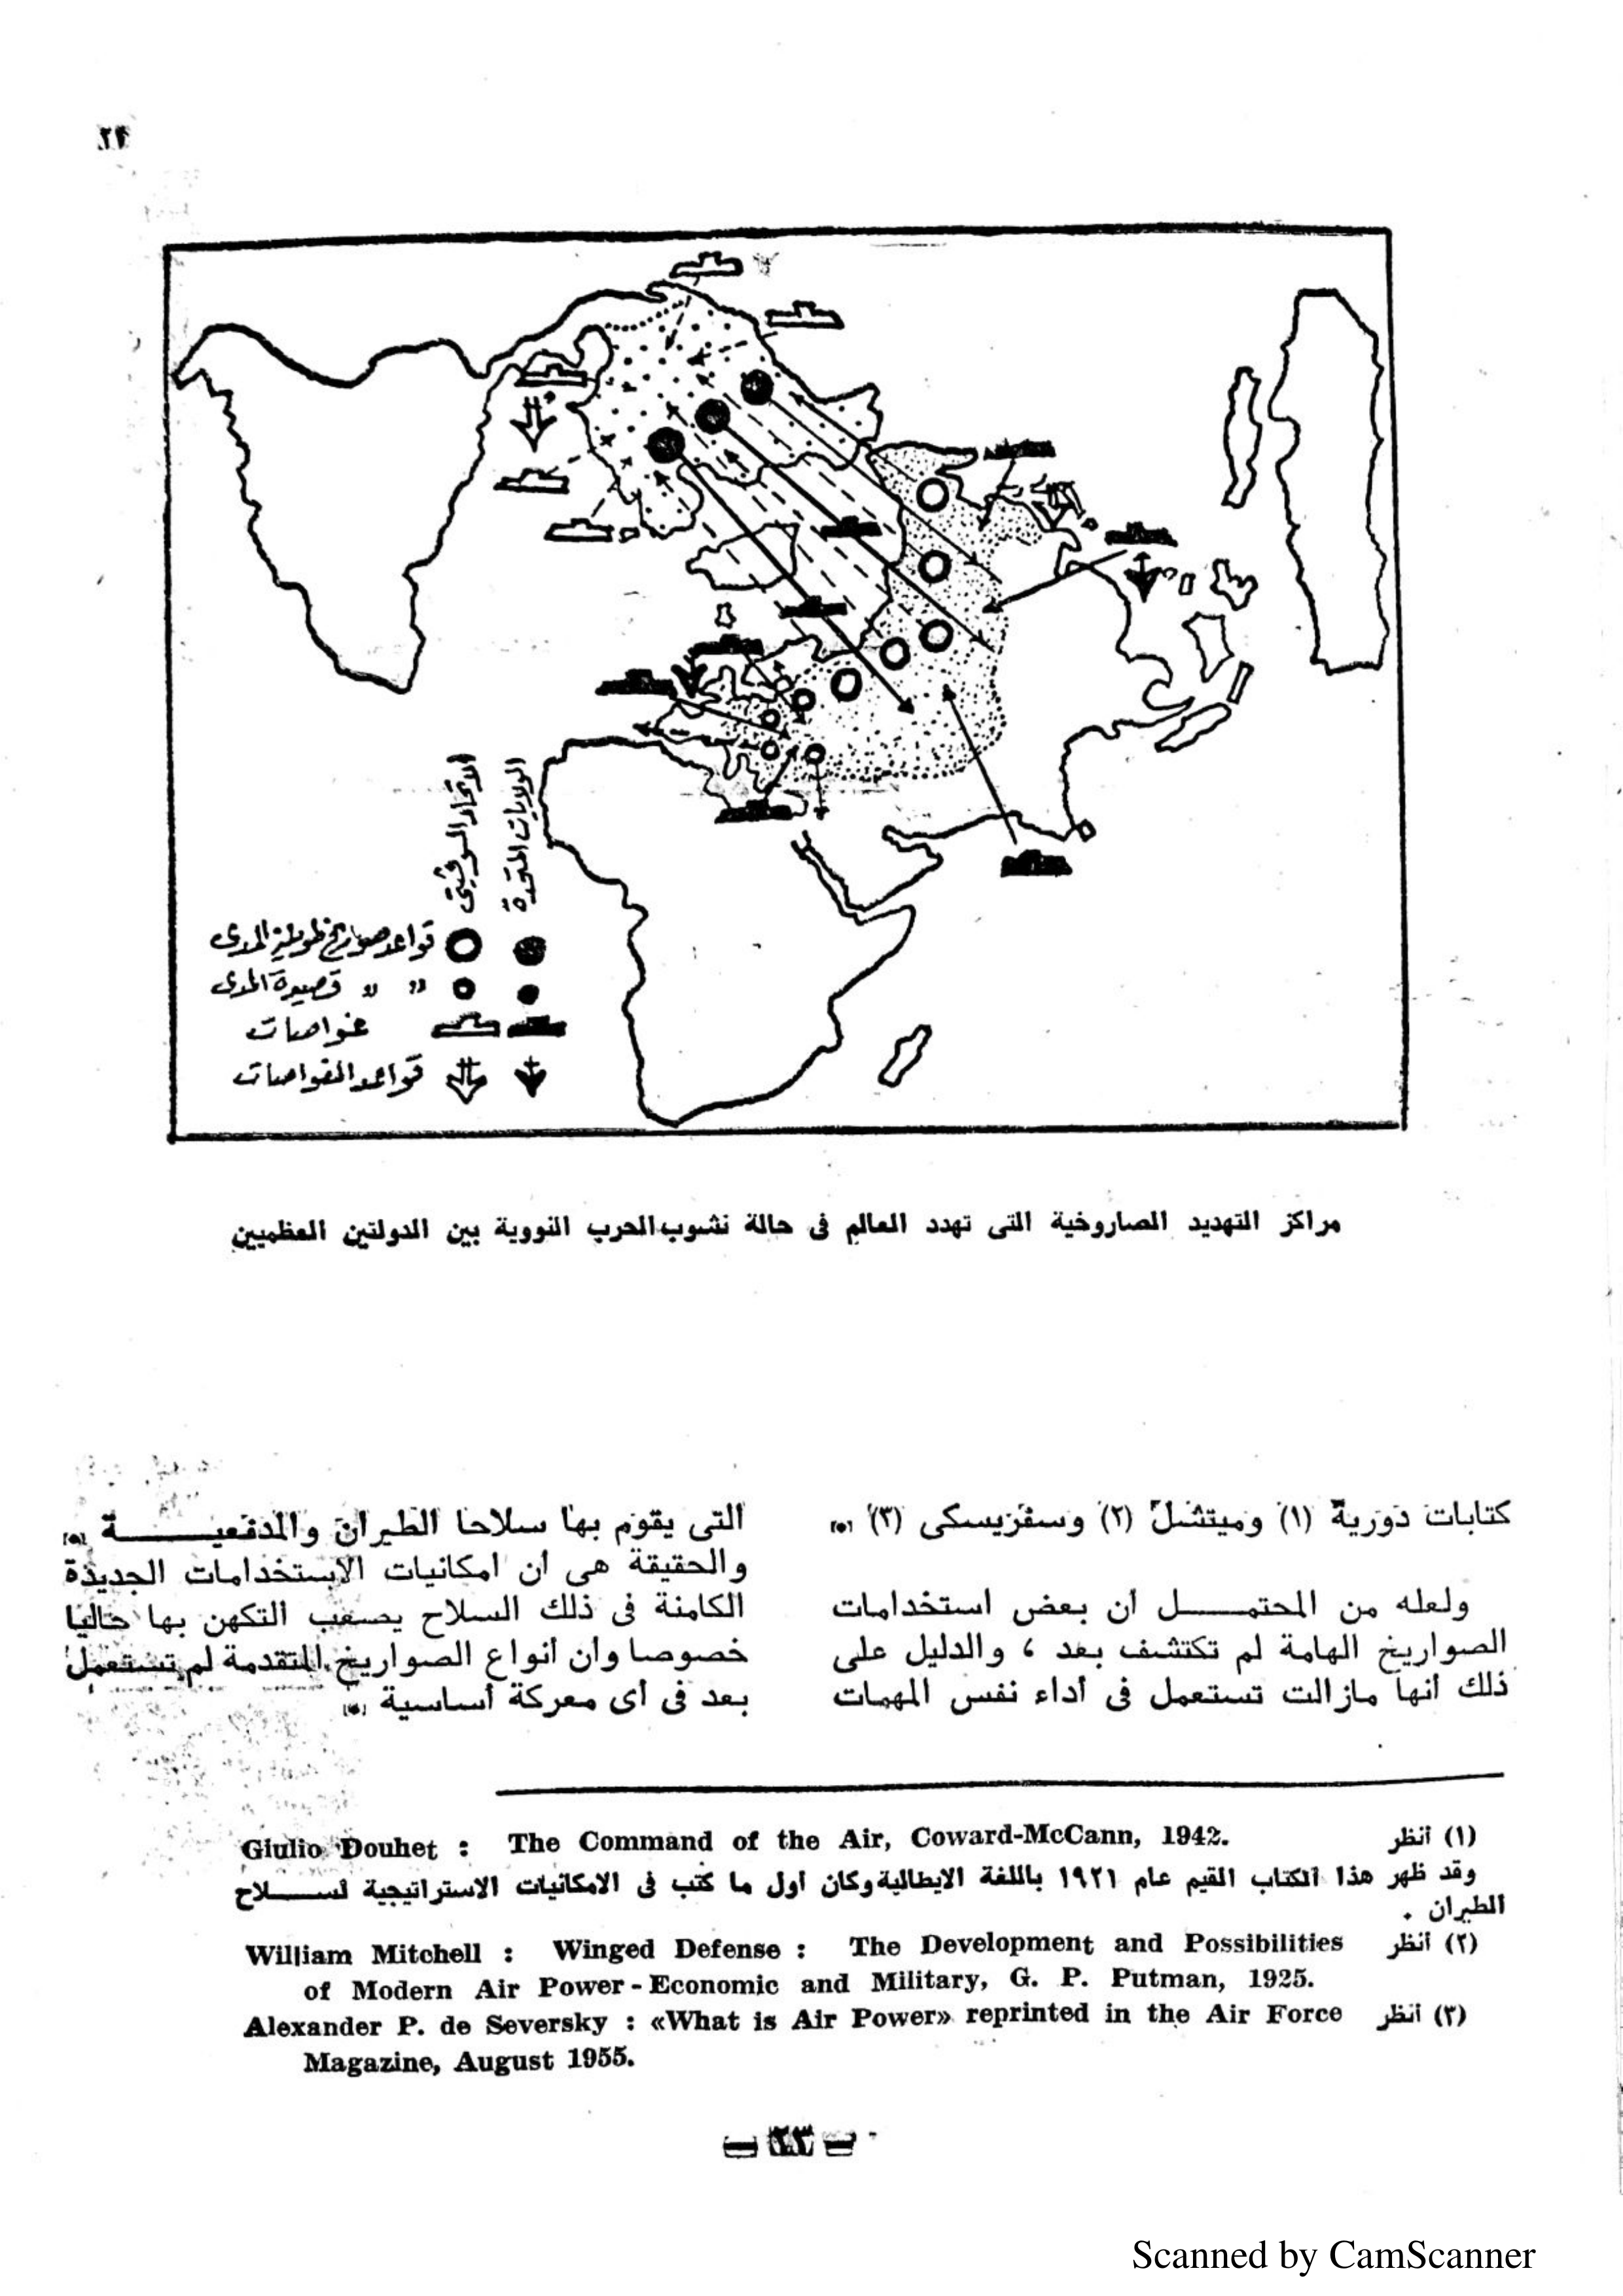 الاتحاد السوفيتى
الولايات المتحدة
قواعد صواريخ طويلة المدى
" " قصيرة المدى
غواصات
قواعد الغواصات
مراكز التهديد الصاروخية التى تهدد العالم فى حالة نشوب الحرب النووية بين الدولتين العظميين
كتابات دورية (١) وميتشل (٢) وسفرسكى (٣)
ولعله من المحتمل أن بعض استخدامات
الصواريخ الهامة لم تكتشف بعد ، والدليل على
ذلك أنها مازالت تستعمل فى أداء نفس المهمات
التى يقوم بها سلاحا الطيران والمدفعية
والحقيقة هى ان امكانيات الاستخدامات الجديدة
الكامنة فى ذلك السلاح يصعب التكهن بها حاليا
خصوصا وان أنواع الصواريخ المتقدمة لم تستعمل
بعد فى أى معركة أساسية
(١) أنظر Giulio Douhet : The Command of the Air, Coward-McCann, 1942.
وقد ظهر هذا الكتاب القيم عام ١٩٢١ باللغة الايطالية وكان أول ما كتب فى الامكانيات الاستراتيجية لسلاح
الطيران .
(٢) أنظر William Mitchell : Winged Defense : The Development and Possibilities
of Modern Air Power - Economic and Military, G. P. Putman, 1925.
(٣) أنظر Alexander P. de Seversky : «What is Air Power» reprinted in the Air Force
Magazine, August 1955.
— ٢٣ —
Scanned by CamScanner